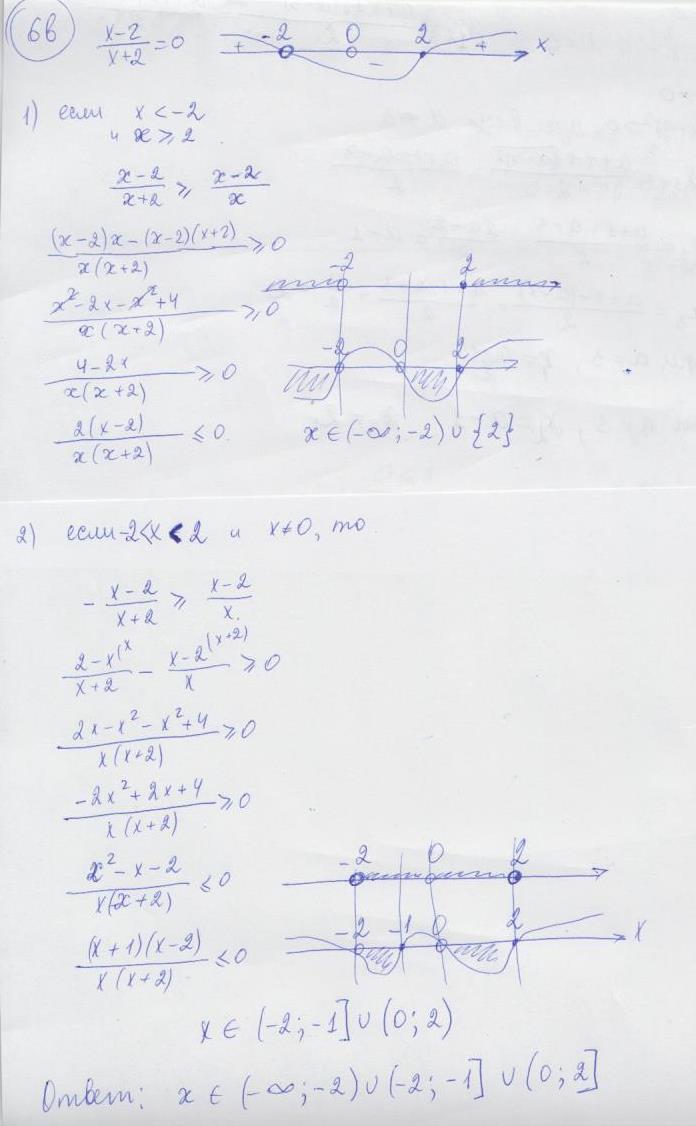 6в
(x-2)/(x+2) = 0
+ -2 0 - 2 + x
1) если x < -2
и x ≥ 2
(x-2)/(x+2) ≥ (x-2)/x
((x-2)x - (x-2)(x+2))/(x(x+2)) ≥ 0
-2 2
(x² - 2x - x² + 4)/(x(x+2)) ≥ 0
-2 0 2
(4 - 2x)/(x(x+2)) ≥ 0
(2(x-2))/(x(x+2)) ≤ 0
x ∈ (-∞; -2) ∪ {2}
2) если -2 < x < 2 и x ≠ 0, то
- (x-2)/(x+2) ≥ (x-2)/x.
(2-x)/(x+2) (x - (x-2)/x (x+2) ≥ 0
(2x - x² - x² + 4)/(x(x+2)) ≥ 0
(-2x² + 2x + 4)/(x(x+2)) ≥ 0
-2 0 2
(x² - x - 2)/(x(x+2)) ≤ 0
-2 -1 0 2 x
((x+1)(x-2))/(x(x+2)) ≤ 0
x ∈ (-2; -1] ∪ (0; 2)
Ответ: x ∈ (-∞; -2) ∪ (-2; -1] ∪ (0; 2]